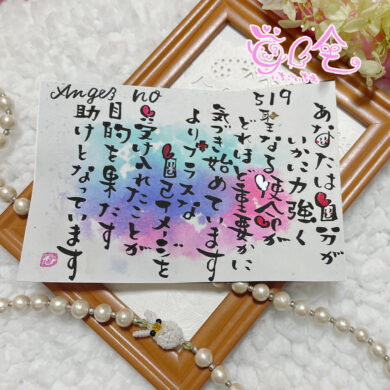 Angel no 519
あなたは自分が
いかに力強く
聖なる使命が
どれほど重要かに
気づき始めています
よりプラスな
自己イメージを
受け入れたことが
目的を果たす
助けとなっています